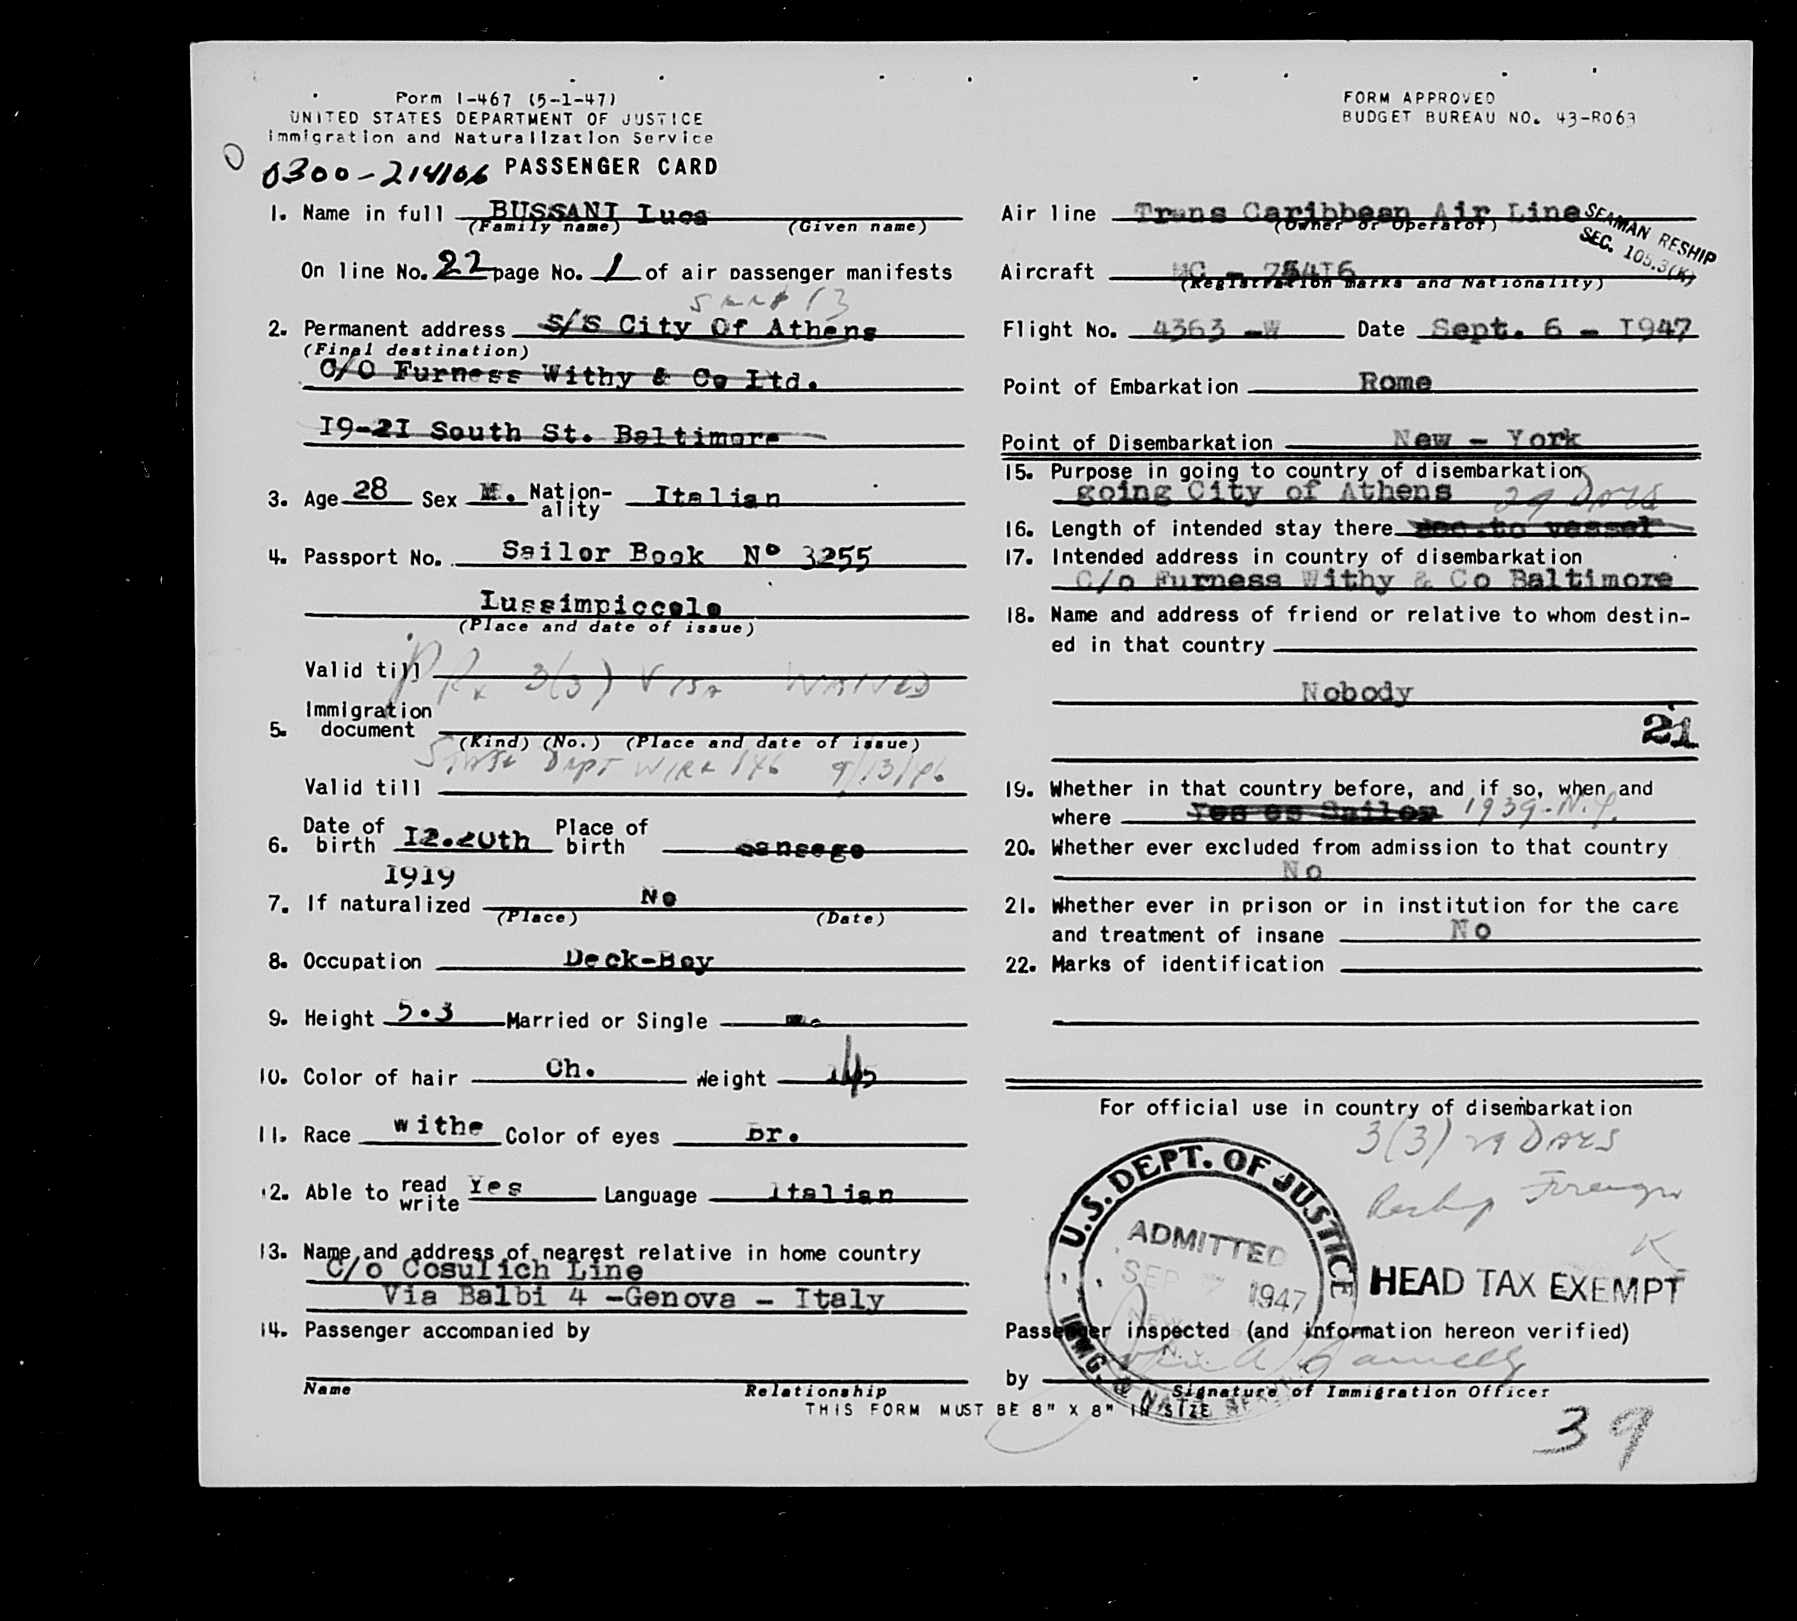 Form I-467 (5-1-47)
UNITED STATES DEPARTMENT OF JUSTICE
Immigration and Naturalization Service
FORM APPROVED
BUDGET BUREAU NO. 43-R063
0300-214106 PASSENGER CARD
1. Name in full BUSSANI Luca
(Family name) (Given name)
On line No. 22 page No. 1 of air passenger manifests
2. Permanent address S/S City Of Athens
(Final destination)
C/O Furness Withy & Co Ltd.
19-21 South St. Baltimore
3. Age 28 Sex M. Nation-ality Italian
4. Passport No. Sailor Book Nº 3255
Lussimpiccolo
(Place and date of issue)
Valid till 3(3) Visa WAIVED
5. Immigration document
(Kind) (No.) (Place and date of issue)
State Dept Wire 146 9/13/46
Valid till
6. Date of birth 12.20th Place of birth Sansego
1919
7. If naturalized No
(Place) (Date)
8. Occupation Deck-Boy
9. Height 5.3 Married or Single
10. Color of hair Ch. Weight 145
11. Race withe Color of eyes Br.
12. Able to read write Yes Language Italian
13. Name and address of nearest relative in home country
C/o Cosulich Line
Via Balbi 4 -Genova - Italy
14. Passenger accompanied by
Name Relationship
THIS FORM MUST BE 8" X 8" IN SIZE
Air line Trans Caribbean Air Line
(Owner or Operator)
SEAMAN RESHIP
SEC. 105.3(K)
Aircraft
(Registration marks and Nationality)
Flight No. 4363 -W Date Sept. 6 - 1947
Point of Embarkation Rome
Point of Disembarkation New - York
15. Purpose in going to country of disembarkation
going City of Athens 29 DAYS
16. Length of intended stay there acc.to vessel
17. Intended address in country of disembarkation
C/o Furness Withy & Co Baltimore
18. Name and address of friend or relative to whom destin-
ed in that country
Nobody
21
19. Whether in that country before, and if so, when and
where Yes es Sailor 1939-N.Y.
20. Whether ever excluded from admission to that country
No
21. Whether ever in prison or in institution for the care
and treatment of insane No
22. Marks of identification
For official use in country of disembarkation
3(3) 29 DAYS
Reship Foreign
K
U.S. DEPT. OF JUSTICE
ADMITTED
SEP 7 1947
NEW YORK
N.Y.
IMMG. & NATZ. SERVICE
HEAD TAX EXEMPT
Passenger inspected (and information hereon verified)
by
Signature of Immigration Officer
39